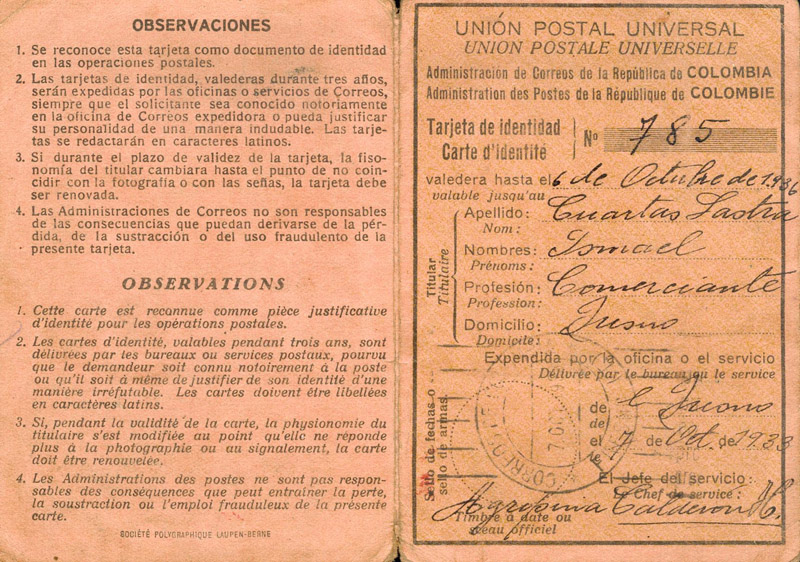 OBSERVACIONES
1. Se reconoce esta tarjeta como documento de identidad
en las operaciones postales.
2. Las tarjetas de identidad, valederas durante tres años,
serán expedidas por las oficinas o servicios de Correos,
siempre que el solicitante sea conocido notoriamente
en la oficina de Correos expedidora o pueda justificar
su personalidad de una manera indudable. Las tarje-
tas se redactarán en caracteres latinos.
3. Si durante el plazo de validez de la tarjeta, la fiso-
nomía del titular cambiara hasta el punto de no coin-
cidir con la fotografía o con las señas, la tarjeta debe
ser renovada.
4. Las Administraciones de Correo no son responsables
de las consecuencias que puedan derivarse de la pér-
dida, de la sustracción o del uso fraudulento de la
presente tarjeta.
OBSERVATIONS
1. Cette carte est reconnue comme pièce justificative
d'identité pour les opérations postales.
2. Les cartes d'identité, valables pendant trois ans, sont
délivrées par les bureaux ou services postaux, pourvu
que le demandeur soit connu notoirement à la poste
ou qu'il soit à même de justifier de son identité d'une
manière irréfutable. Les cartes doivent être libellées
en caractères latins.
3. Si, pendant la validité de la carte, la physionomie du
titulaire s'est modifiée au point qu'elle ne réponde
plus à la photographie ou au signalement, la carte
doit être renouvelée.
4. Les Administrations des postes ne sont pas respon-
sables des conséquences que peut entraîner la perte,
la soustraction ou l'emploi frauduleux de la présente
carte.
SOCIÉTÉ POLYGRAPHIQUE LAUPEN-BERNE
UNIÓN POSTAL UNIVERSAL
UNION POSTALE UNIVERSELLE
Administración de Correos de la República de COLOMBIA
Administration des Postes de la République de COLOMBIE
Tarjeta de identidad
Carte d'identité
Nº 785
valedera hasta el 6 de Octubre de 1936
valable jusqu'au
Titular
Titulaire
Apellido: Cuartas Lastra
Nom:
Nombres: Ismael
Prénoms:
Profesión: Comerciante
Profession:
Domicilio:
Domicile:
Expendida por la oficina o el servicio
Délivrée par le bureau ou le service
de
de
el 7 de Oct. de 1933
le
Sello de fechas o
sello de armas
El Jefe del servicio:
Le Chef de service:
Agripina Calderon H.
Timbre à date ou
sceau officiel